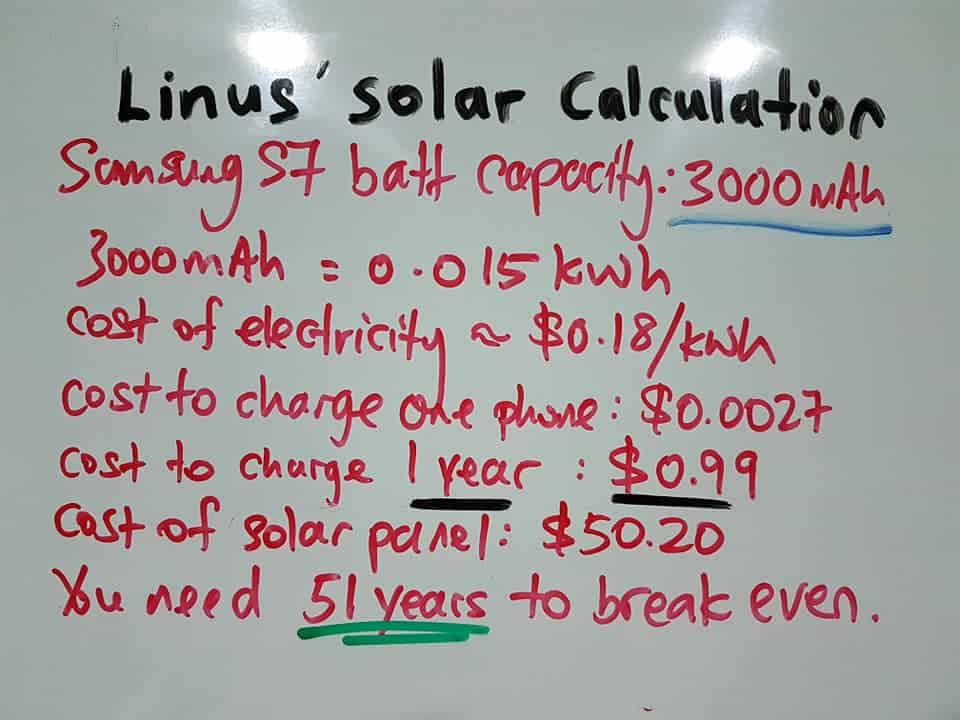 Linus' solar Calculation
Samsung S7 batt capacity: 3000mAh
3000mAh = 0.015 kwh
cost of electricity ≈ $0.18/kwh
cost to charge one phone: $0.0027
cost to charge 1 year : $0.99
cost of solar panel: $50.20
You need 51 years to break even.